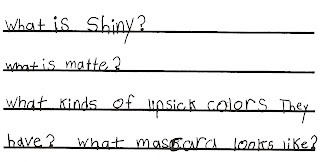 What is Shiny?
what is matte?
what kinds of lipsick colors They
have? what mascara looks like?